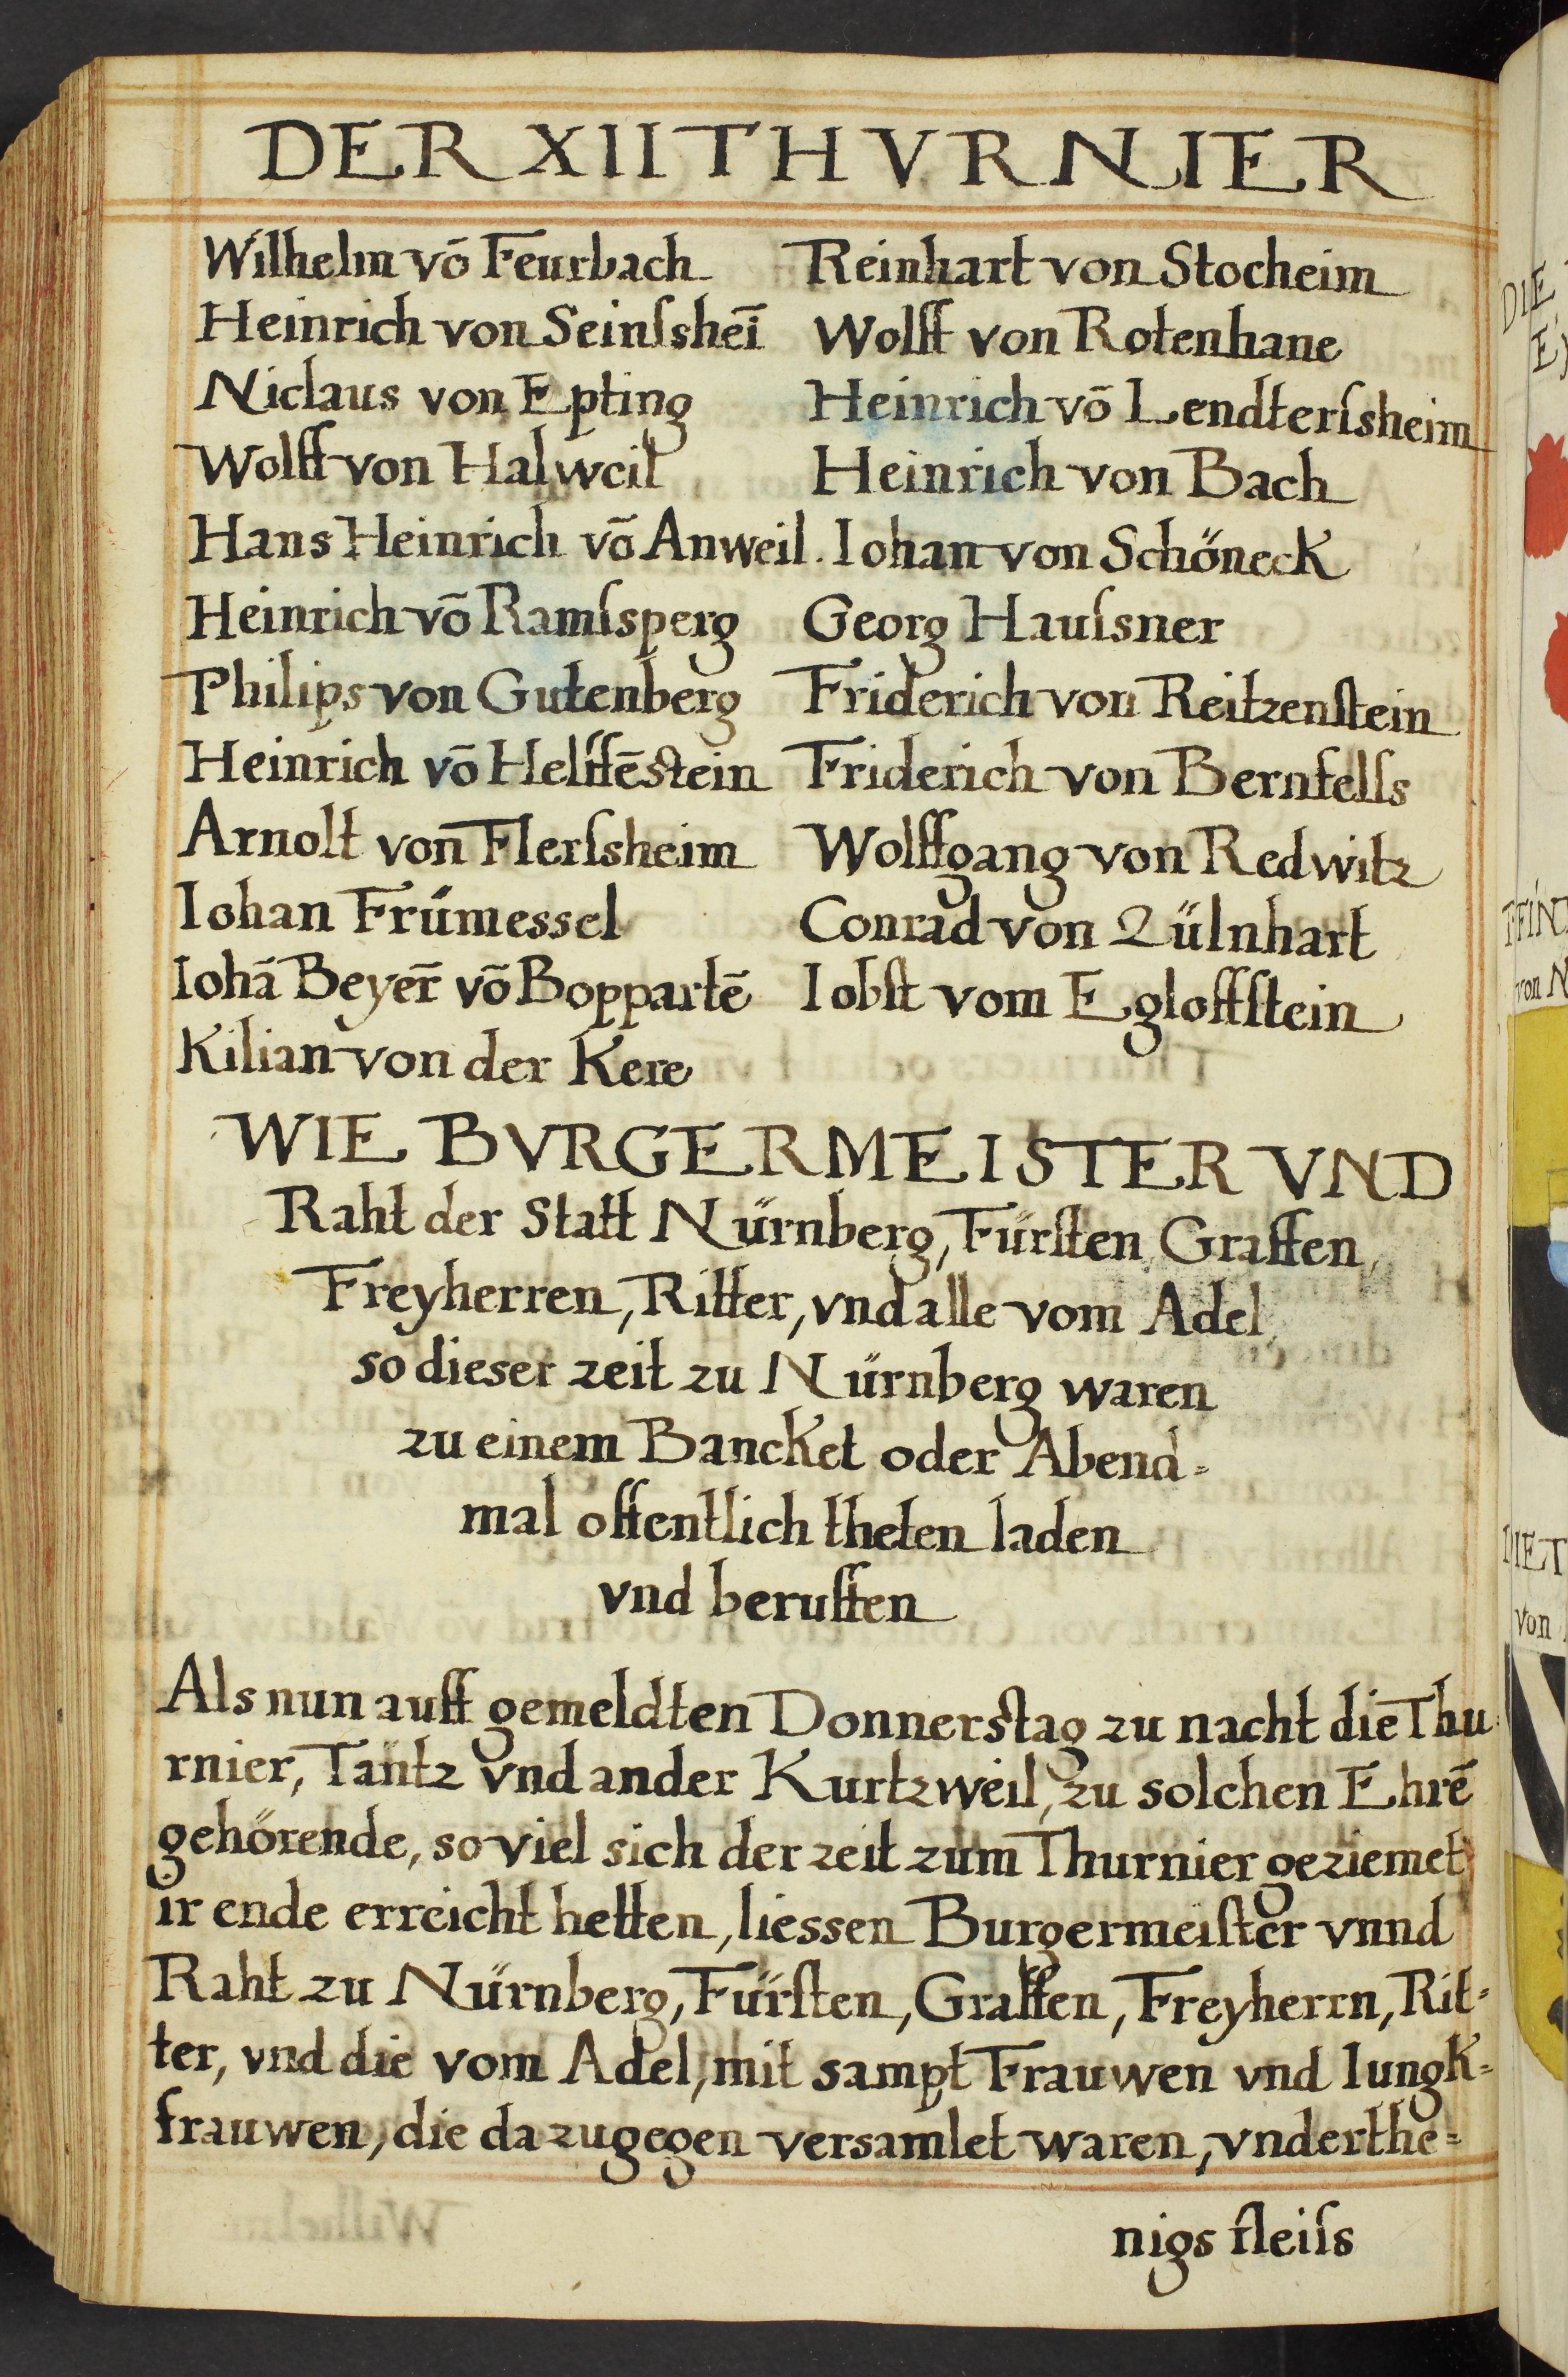 DER XII THVRNIER
Wilhelm võ Feurbach
Heinrich von Seinſsheĩ
Niclaus von Epting
Wolff von Halweil
Hans Heinrich võ Anweil.
Heinrich võ Ramſsperg
Philips von Gutenberg
Heinrich võ Helffẽstein
Arnolt von Flerſsheim
Iohan Frümessel
Iohã Beyer̃ võ Boppartẽ
Kilian von der Kere
Reinhart von Stocheim
Wolff von Rotenhane
Heinrich võ Lendterſsheim
Heinrich von Bach
Iohan von Schöneck
Georg Hauſsner
Friderich von Reitzenſtein
Friderich von Bernfelſs
Wolffgang von Redwitz
Conrad von Lülnhart
Iobſt vom Egloffſtein
WIE BVRGERMEISTER VND
Raht der Statt Nürnberg, Fürſten, Graffen,
Freyherren, Ritter, vnd alle vom Adel,
so dieser zeit zu Nürnberg waren
zu einem Bancket oder Abend=
mal offentlich theten laden
vnd beruffen
Als nun auff gemeldten Donnerstag zu nacht die Thu=
rnier, Täntz vnd ander Kurtzweil, zu solchen Ehrẽ
gehörende, so viel sich der zeit zum Thurnier geziemet
ir ende erreicht hetten, liessen Burgermeiſter vnnd
Raht zu Nürnberg, Fürſten, Graffen, Freyherrn, Rit=
ter, vnd die vom Adel, mit sampt Frauwen vnd Iungk=
frauwen, die da zugegen versamlet waren, vnderthe=
nigs fleiſs
DIE
PFIN
von N
DIET
von